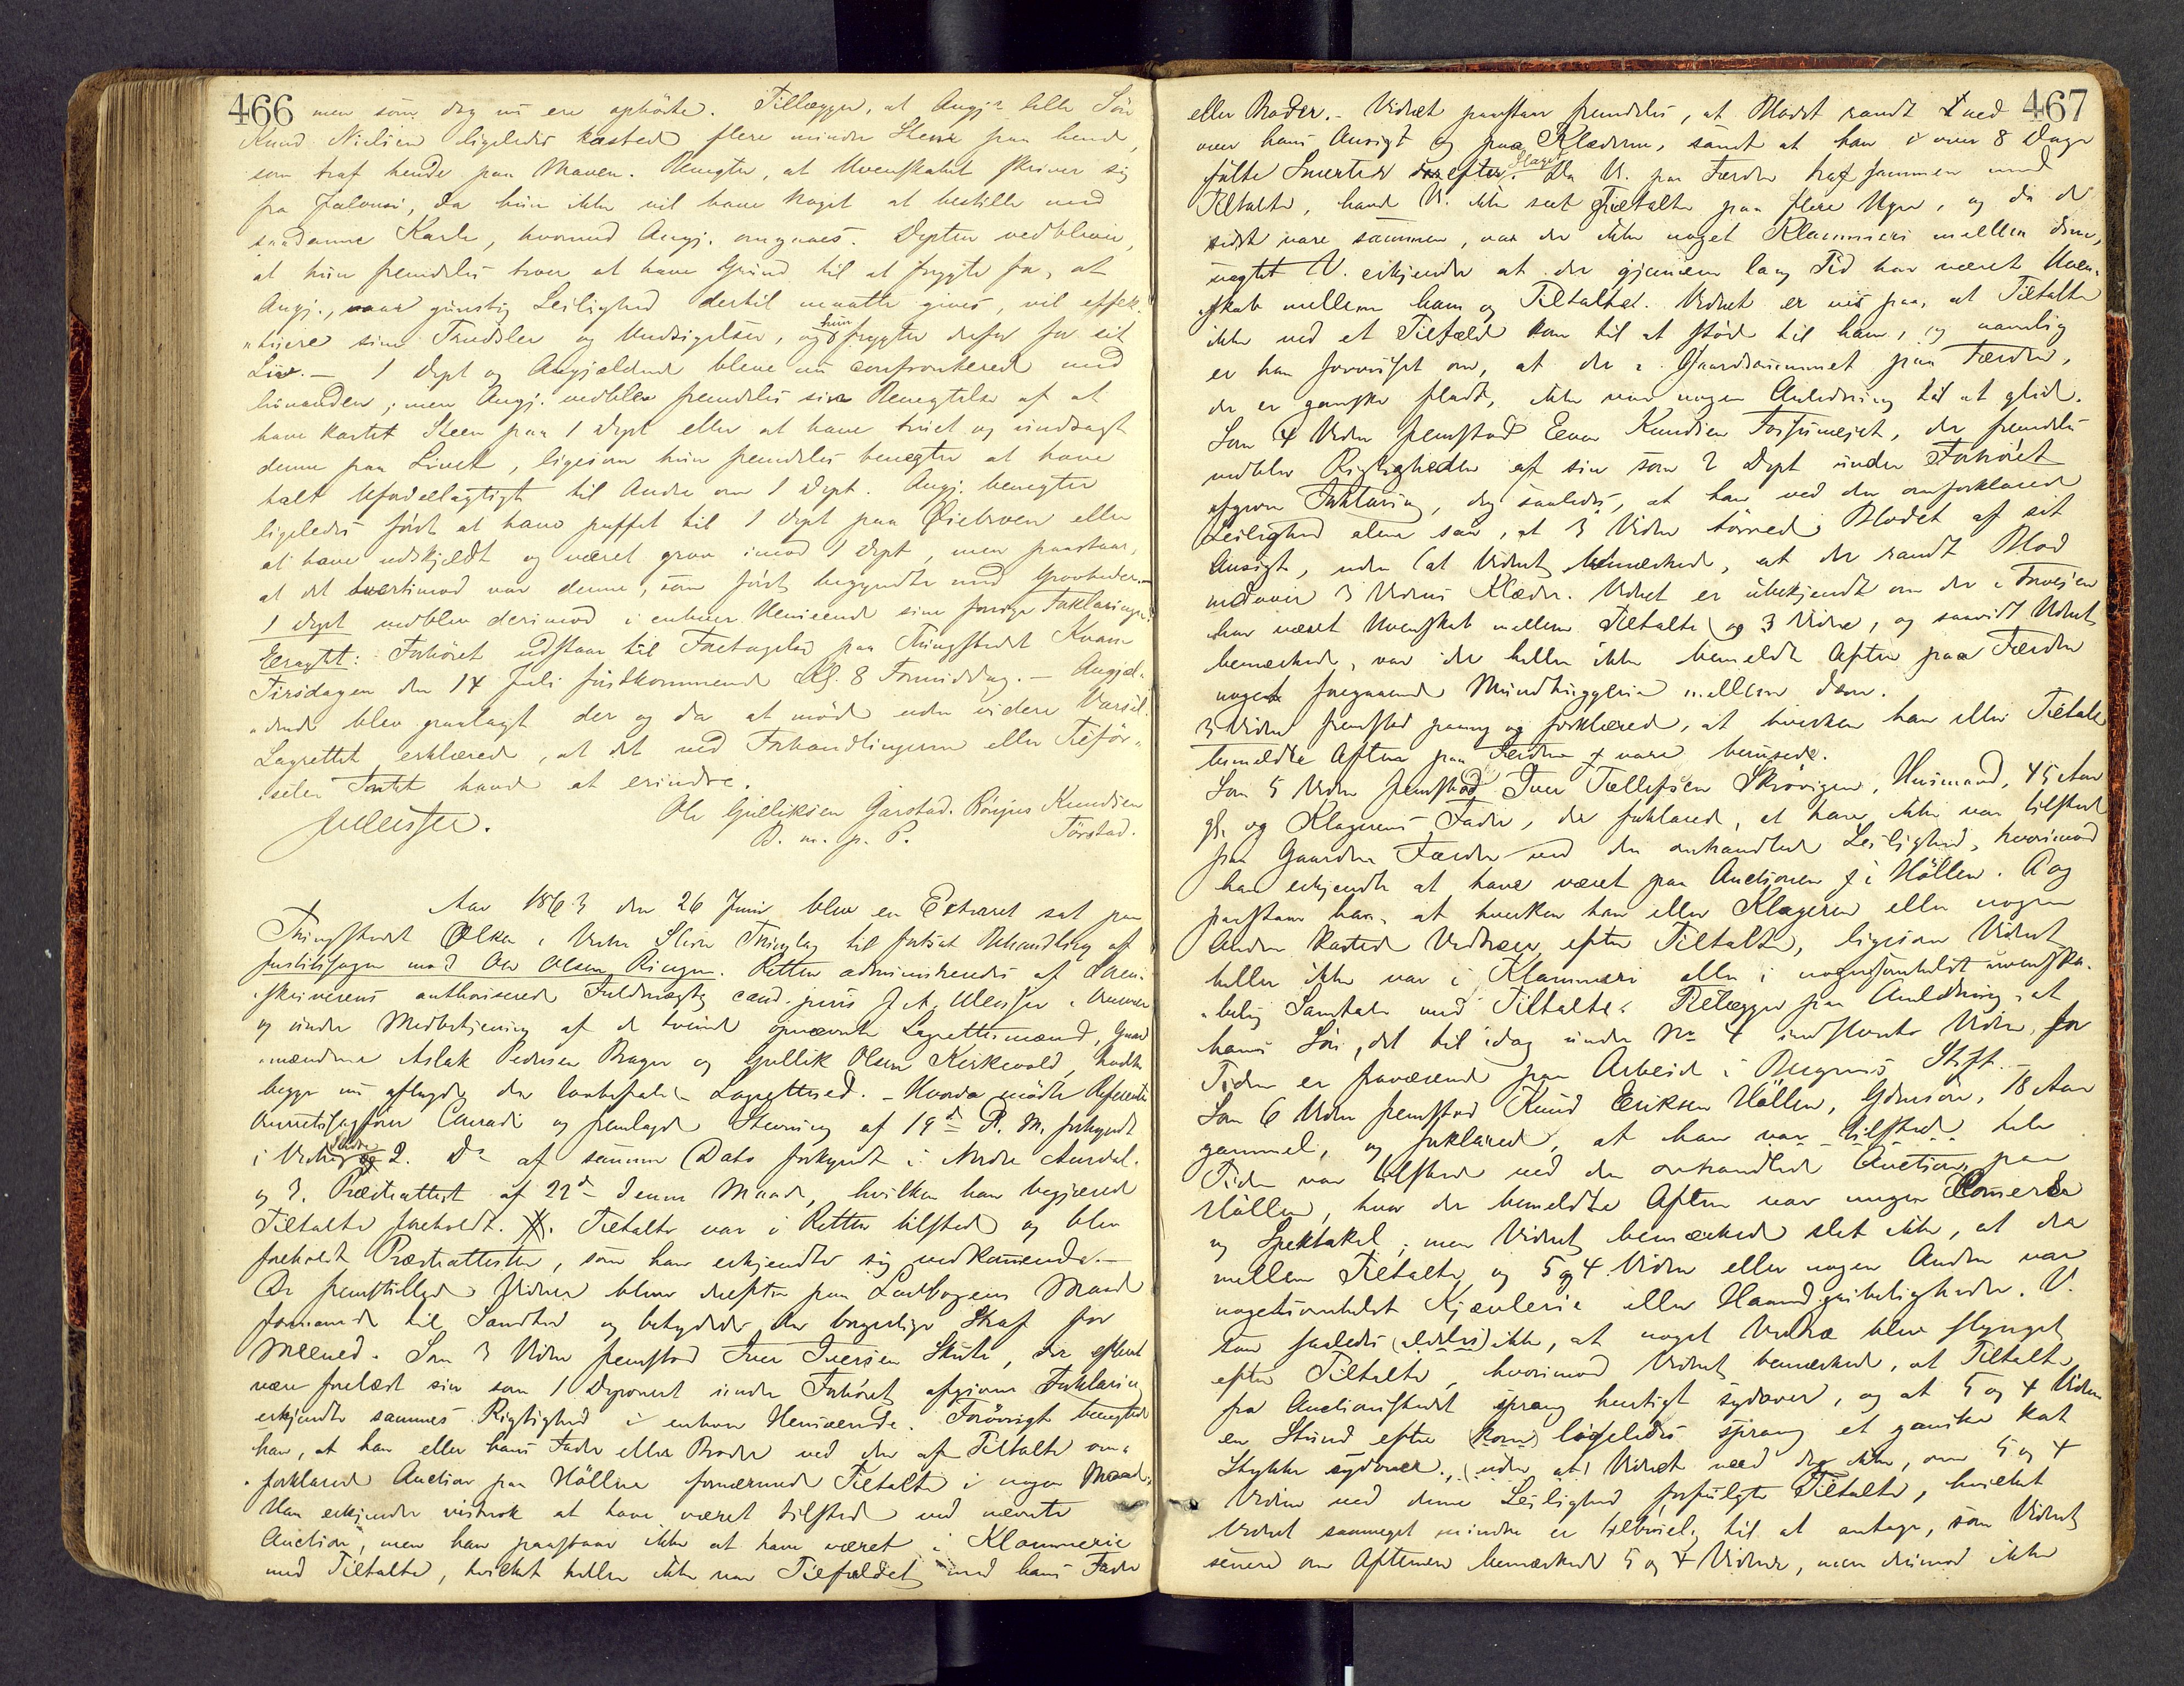 466 men som dog nu ere ophörte. Tillægger, at Angj: lille Sön
Knud Nielsen ligeledes kastede flere mindre Stene paa hende,
som traf hende paa Maven. Benegter, at Uvenskabet skriver sig
fra Jalousi, da hun ikke vil have noget at bestille med
saadanne Karle, hvormed Angj. omgaaes. Depten vedbliver,
at hun fremdeles troer at have Grund til at frygte for, at
Angj., naar gunstig Leilighed dertil maatte gives, vil effek-
tuere sine Trudsler og Undsigelser, og hun frygter derfor for sit
Liv. – 1 Dept og Angjældende bleve nu confronterede med
hinanden; men Angj. vedblev fremdeles sin Benegtelse af at
have kastet Steen paa 1 Dept eller at have truet og undsagt
denne paa Livet, ligesom hun fremdeles benegter at have
talt ufordelagtigt til Andre om 1 Dept. Angj. benegter
ligeledes först at have puffet til 1 Dept paa Qiebroen eller
at have udskjeldt og været grov imod 1 Dept, men paastaar,
at det tvertimod var denne, som först begyndte med Grovheder. –
1 Dept vedblev derimod i enhver Henseende sine forrige Forklaringer.
Eragtet: Forhöret udstaar til Foretagelse paa Thingstedet Kvam
Tirsdagen den 14 Juli förstkommende Kl. 8 Formiddag. – Angjæl-
dende blev paalagt der og da at möde uden videre Varsel.
Lagrettet erklærede, at det ved Forhandlingerne eller Tilför-
selen Intet havde at erindre.
Ole Gulliksen Garstad. Knudsen
m. p. P. Törstad.
Aar 1863 den 26 Juni blev en Extraret sat paa
Thingstedet Ölken i Vestre Slidre Thinglag til fortsat Behandling af
Justitssagen mod Ole Olsen Ringen. Retten administreredes af Soren-
skriverens authoriserede Fuldmægtig cand. juris
og under Medbetjening af de tvende opnævnte Lagrettesmænd, Gaard-
mændene Aslak Pedersen Brager og Gullik Olsen Kirkevold, hvilke
begge nu aflagde den lovbefalede Lagrettesed. – Hvorda mödte Referenten
Overretssagförer Conradi og fremlagde Stevning af 19de d. M. forkyndt
i Vestre Slidre 2. Do af samme Dato forkyndt i Nordre Aurdal.
og 3. Præsteattest af 22de denne Maaned, hvilken han begjærede
Tiltalte foreholdt. Tiltalte var i Retten tilstede og blev
foreholdt Præsteattesten, som han erkjendte sig vedkommende. –
De fremstillede Vidner bleve derefter paa Lovbogens Maade
formanede til Sandhed og betydede den borgerlige Straf for
Meened. Som 3 Vidne fremstod Iver Iversen Skute, der efterat
være forelæst sin som 1 Deponent under Forhöret afgivne Forklaring
erkjendte sammes Rigtighed i enhver Henseende. Forövrigt benegtede
han, at han eller hans Fader eller Broder ved den af Tiltalte om-
forklarede Auction paa Höllen fornærmede Tiltalte i nogen Maade.
Han erkjender vistnok at have været tilstede ved nævnte
Auction, men han paastaar ikke at have været i Klammerie
med Tiltalte, hvilket heller ikke var Tilfældet med hans Fader
467
eller Broder. – Vidnet paastaar fremdeles, at Blodet randt ned
over hans Ansigt og paa Klæderne, samt at han i over 8 Dage
fölte Smerter efter Slaget. Da V. paa Færden traf sammen med
Tiltalte, havde V. ikke seet Tiltalte paa flere Uger, og da de
sidst vare sammen, var der ikke noget Klammeri mellem dem,
uagtet V. erkjender at der gjennem lang Tid har været Uven-
skab mellem ham og Tiltalte. Vidnet er vis paa, at Tiltalte
ikke ved et Tilfælde kom til at stöde til ham, og navnlig
er han forvisset om, at der i Gaardsrummet paa Færden,
der er ganske fladt, ikke var nogen Anledning til at glide.
Som 4 Vidne fremstod Even Knudsen , der fremdeles
vedblev Rigtigheden af sin som 2 Dept under Forhöret
afgivne Forklaring, dog saaledes, at han ved den omforklarede
Leilighed alene saa, at 3 Vidne törrede Blodet af sit
Ansigt, uden (at Vidnet bemærkede, at der randt Blod
nedover 3 Vidnes Klæder. Vidnet er ubekjendt om der i Forveien
har været Uvenskab mellem Tiltalte og 3 Vidne, og saavidt Vidnet
bemærkede, var der heller ikke bemeldte Aften paa Færden
noget foregaaende Mundhuggeri mellem dem.
3 Vidne fremstod paany og forklarede, at hverken han eller Tiltalte
bemeldte Aften paa Færden vare berusede.
Som 5 Vidne fremstod Iver Tollefsen Skrövigen, Husmand, 45 Aar
gl. og Klagerens Fader, der forklarede, at han ikke var tilstede
paa Gaarden Færden ved den omhandlede Leilighed, hvorimod
han erkjendte at have været paa Auctionen i Höllen. Dog
paastaar han, at hverken han eller Klageren eller nogen
Anden kastede Vedtræer efter Tiltalte, ligesom Vidnet
heller ikke var i Klammeri eller i nogensomhelst uvenska-
belig Samtale med Tiltalte. Tillægger paa Anledning, at
hans Sön, det til idag under No 4 indstevnte Vidne, for
Tiden er fraværende paa Arbeide i Bergens Stift. –
Som 6 Vidne fremstod Knud Eriksen Höllen, Gdmssön, 18 Aar
gammel, og forklarede, at han var tilstede hele
Tiden var tilstede ved den omhandlede Auction paa
Höllen, hvor der bemeldte Aften var megen Kommers
og Spektakel; men Vidnet bemærkede slet ikke, at der
mellem Tiltalte og 5 og 4 Vidne eller nogen Anden var
nogetsomhelst Kjævleri eller Haandgribeligheder. V.
saa saaledes (aldeles) ikke, at noget Vedtræ blev slynget
efter Tiltalte, hvorimod Vidnet bemærkede, at Tiltalte
fra Auctionsstedet sprang hurtigt sydover, og at 5 og 4 Vidne
en Stund efter (kom) ligeledes sprang et ganske kort
Stykke sydover., (uden at) Vidnet veed dog ikke, om 5 og 4
Vidne ved denne Leilighed forfulgte Tiltalte, hvilket
Vidnet saameget mindre er tilböielig til at antage, som Vidnet
senere om Aftenen bemærkede 5 og 4 Vidner, men derimod ikke